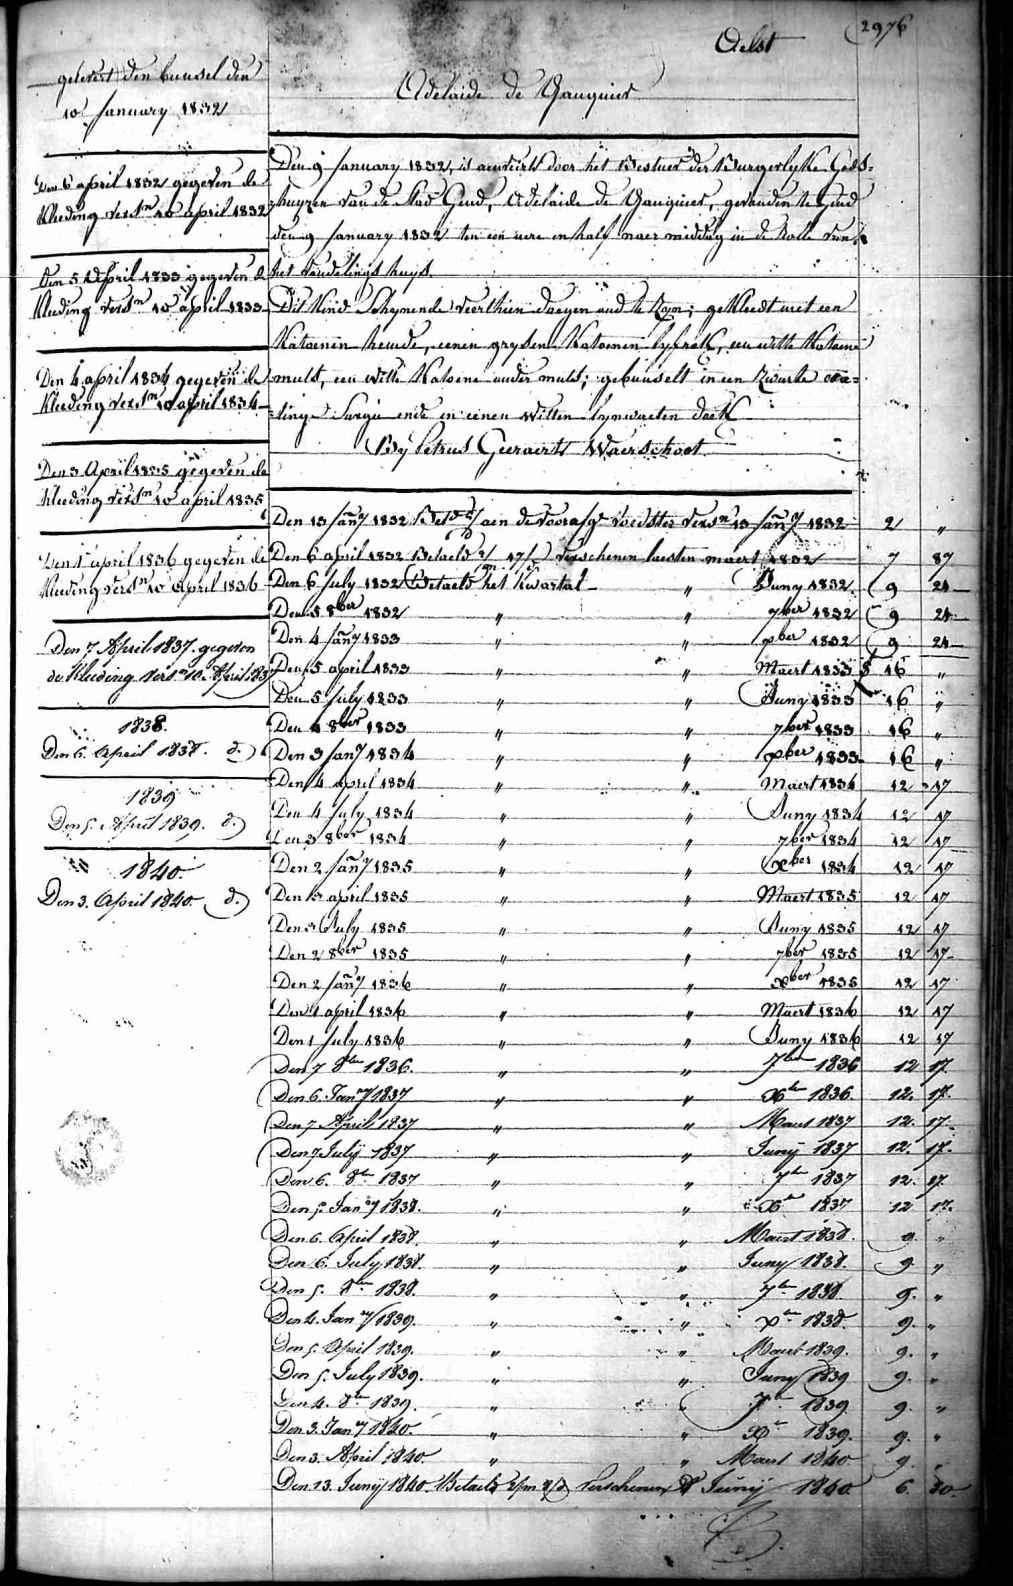 2976
Aelst
Adelaide de Gauquier
gelevert den bunsel den
10 January 1832
Den 6 april 1832 gegeven de
kleeding versn 10 april 1832
Den 5 April 1833 gegeven de
kleeding versn 10 april 1833
Den 4 april 1834 gegeven de
kleeding versn 10 april 1834
Den 3 April 1835 gegeven de
kleeding versn 10 april 1835
Den 1 april 1836 gegeven de
kleeding versn 10 April 1836
Den 7 April 1837 gegeven
de kleeding versn 10 April 1837
1838.
Den 6. April 1838. d.)
1839
Den 5. April 1839. d.)
1840
Den 3. April 1840 d.)
Den 9 January 1832, is aenveirt door het Bestuer der Burgerlyke Gods-
huyzen van de Stad Gend, Adelaide de Gauquier, gevonden te Gend
den 9 January 1832 ten een uere en half naer middag in de Rolle van
het vondelings huys.
Dit kind schynende veerthien daegen oud te zyn; gekleedt met een
katoenen hemde, eenen grysen katoenen lyfrok, een witte katoene
muts, een witte katoene onder muts; gebunselt in een zwarte
Sargie ende in eenen witten lynwaeten doek
By Petrus Geeraerts Waerschoot
Den 13 Jany 1832 aen de voorsz voedster versn 13 Jany 1832 2 "
Den 6 april 1832 Betaeld verschenen laesten maert 1832 7 87
Den 6 July 1832 Betaeld het kwartal " Juny 1832 9 24
Den 5 8ber 1832 " " 7ber 1832 9 24
Den 4 Jany 1833 " " xber 1832 9 24
Den 5 april 1833 " " Maert 1833 16 "
Den 5 July 1833 " " Juny 1833 16 "
Den 4 8ber 1833 " " 7ber 1833 16 "
Den 3 Jany 1834 " " xber 1833 16 "
Den 4 april 1834 " " Maert 1834 12 17
Den 4 July 1834 " " Juny 1834 12 17
Den 3 8ber 1834 " " 7ber 1834 12 17
Den 2 Jany 1835 " " xber 1834 12 17
Den 3 april 1835 " " Maert 1835 12 17
Den 3 July 1835 " " Juny 1835 12 17
Den 2 8ber 1835 " " 7ber 1835 12 17
Den 2 Jany 1836 " " xber 1835 12 17
Den 1 april 1836 " " Maert 1836 12 17
Den 1 July 1836 " " Juny 1836 12 17
Den 7 8ber 1836. " " 7ber 1836 12 17.
Den 6. Jany 1837 " " Xber 1836. 12. 17.
Den 7 April 1837 " " Maert 1837 12. 17.
Den 7 July 1837 " " Juny 1837 12. 17.
Den 6. 8br 1837 " " 7br 1837 12. 17.
Den 5. Jany 1838. " " Xbr 1837 12 17.
Den 6. April 1838. " " Maert 1838. 9. "
Den 6. July 1838. " " Juny 1838. 9. "
Den 5. 8br 1838. " " 7br 1838. 9. "
Den 4. Jany 1839. " " xbr 1838. 9. "
Den 5. April 1839. " " Maert 1839. 9. "
Den 5. July 1839. " " Juny 1839 9. "
Den 4. 8br 1839. " " 7br 1839 9. "
Den 3. Jany 1840. " " xbr 1839. 9. "
Den 3. April 1840. " " Maert 1840 9. "
Den 13. Juny 1840. Betaeld verschenen Juny 1840 6. 30.